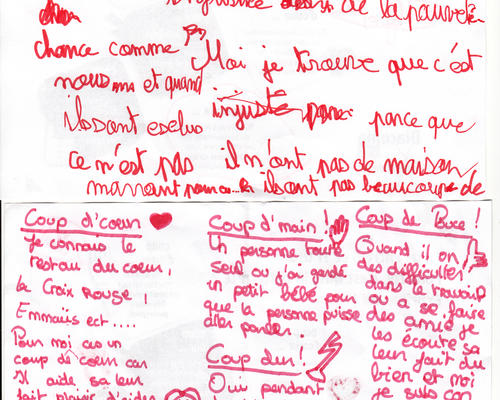 injustice de la pauvreté
chance comme
Moi je trouve que c'est
nous et quand
injuste parce que
ils sont exclus
ce n'est pas il n'ont pas de maison
marrant pour il sont pas beaucoup de
Coup d'coeur
Je connais le
restau du coeur,
la Croix Rouge,
Emmaüs ect....
Pour moi cas un
coup de coeur car
Il aide sa leur
fait plaisir d'aider
Coup d'main!
Un personne toute
seul ou j'ai gardé
un petit bébé pour
que la personne puisse
aller parler.
Coup dur!
Oui pendant
Coup de Pouce!
Quand il on
des difficulter
dans le travail
ou a se faire
des amie je
les écoute sa
leur fait du
bien et moi
je suis con